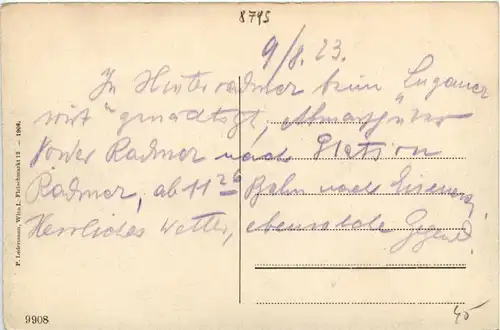 8795
9/8. 23.
In Hinterradmer beim "Luganer
wirt" genächtigt, Abmarsch über
Vorder Radmer nach Station
Radmer, ab 11 26 Bahn nach Eisenerz,
Herrliches Wetter, ebensolche Gegend.
P. Ledermann, Wien I., Fleischmarkt 12 — 1908.
9908
45